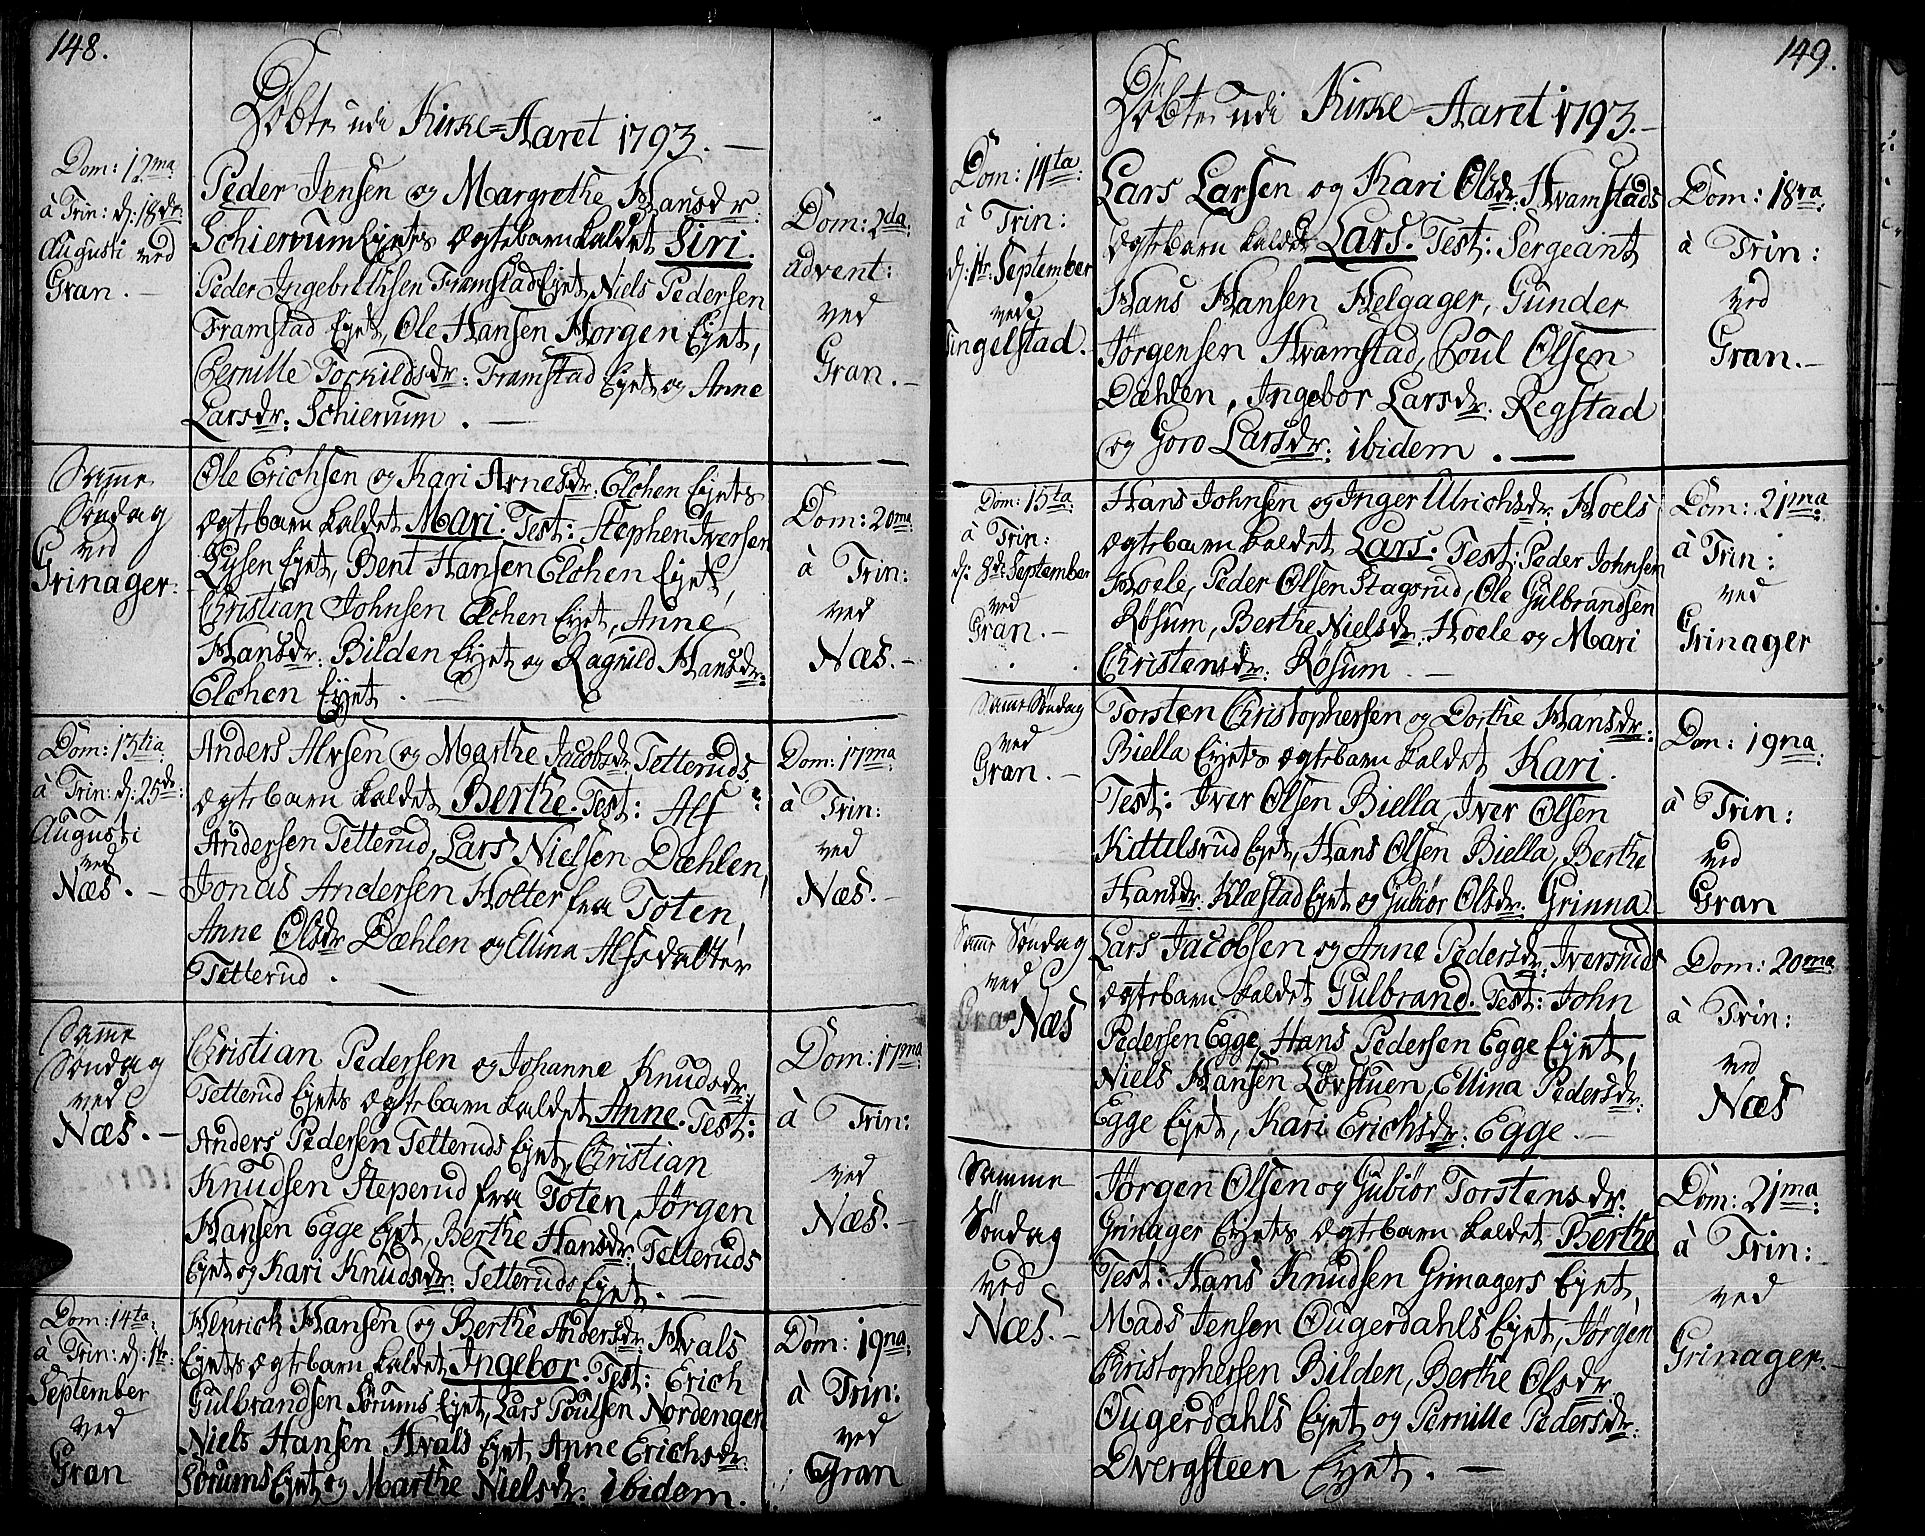 148.
Døbte udi Kirke=Aaret 1793. —
Dom: 12ma
à Trin: d: 18de
Augusti ved
Gran. —
Peder Jensen og Margrethe Hansdr:
Schiervum Eyets ægtebarn kaldet Siri.
Peder Ingebrethsen Framstad Eyet, Niels Pedersen
Framstad Eyet, Ole Hansen Horgen Eyet,
Pernille Torkildsdr: Framstad Eyet og Anne
Larsdr: Schiervum. —
Dom: 2da
advent:
ved
Gran. —
Samme
Søndag
ved
Grinager.
Ole Erichsen og Kari Arnesdr: Elchen Eyets
ægtebarn kaldet Mari. Test: Stephen Iversen
Lysen Eyet, Bent Hansen Elchen Eyet,
Christian Johnsen Elchen Eyet, Anne
Hansdr: Bilden Eyet og Ragnild Hansdr:
Elchen Eyet. —
Dom: 20ma
à Trin:
ved
Næs. —
Dom: 13tia
à Trin: d: 25de
Augusti
ved
Næs. —
Anders Alvsen og Marthe Jacobsdr: Tetteruds
ægtebarn kaldet Berthe. Test: Alf
Andersen Tetterud, Lars Nielsen Dæhlen,
Jonas Andersen Holter fra Toten,
Anne Olsdr Dæhlen og Ellina Alfsdatter
Tetterud. —
Dom: 17ma
à Trin:
ved
Næs. —
Samme
Søndag
ved
Næs. —
Christian Pedersen og Johanne Knudsdr
Tetterud Eyets ægtebarn kaldet Anne. Test:
Anders Pedersen Tetteruds Eyet, Christian
Knudsen Steperud fra Toten, Jørgen
Hansen Egge Eyet, Berthe Hansdr: Tetteruds
Eyet og Kari Knudsdr: Tetteruds Eyet. —
Dom: 17ma
à Trin:
ved
Næs. —
Dom: 14ta
à Trin: d: 1te:
September
ved
Gran
Henrick Hansen og Berthe Andersdr: Hvals
Eyets ægtebarn kaldet Ingebor. Test: Erich
Gulbrandsen Sørums Eyet, Lars Poulsen Nordengen
Niels Hansen Hvals Eyet, Anne Erichsdr:
Sørums Eyet og Marthe Nielsdr: ibidem.
Dom: 19na
à Trin:
ved
Gran
149.
Døbte udi Kirke-Aaret 1793. —
Dom: 14ta
à Trin:
d: 1te: September
ved
Tingelstad.
Lars Larsen og Kari Olsdr: Hvamstads
ægtebarn kaldet Lars. Test: Sergeant
Hans Hansen Helgager, Gunder
Jørgensen Hvamstad, Poul Olsen
Dæhlen, Ingebor Larsdr: Regstad
og Goro Larsdr: ibidem. —
Dom: 18va
à Trin:
ved
Gran. —
Dom: 15ta
à Trin:
d: 8de September
ved
Gran. —
Hans Johnsen og Inger Ulrichsdr: Hoels
ægtebarn kaldet Lars. Test: Peder Johnsen
Hoele, Peder Olsen Stagsrud, Ole Gulbrandsen
Røsum, Berthe Nielsdr: Hoele og Mari
Christensdr: Røsum. —
Dom: 21ma
à Trin:
ved
Grinager
Samme Søndag
ved
Gran. —
Torsten Christophersen og Dorthe Hansdr:
Biella Eyets ægtebarn kaldet Kari.
Test: Iver Olsen Biella, Iver Olsen
Kittelsrud Eyet, Hans Olsen Biella, Berthe
Hansdr: Klæstad Eyet og Gubiør Olsdr: Grinna
Dom: 19na
à Trin:
ved
Gran
Samme Søndag
ved
Næs
Lars Jacobsen og Anne Pedersdr: Iversruds
ægtebarn kaldet Gulbrand. Test: John
Pedersen Egge, Hans Pedersen Egge Eyet,
Niels Hansen Lørstuen, Ellina Pedersdr:
Egge Eyet, Kari Erichsdr: Egge. —
Dom: 20ma
à Trin:
ved
Næs
Samme
Søndag
ved
Næs. —
Jørgen Olsen og Gubiør Torstensdr:
Grinager Eyets ægtebarn kaldet Berthe
Test: Hans Knudsen Grinagers Eyet,
Mads Jensen Ougerdahls Eyet, Jørgen
Christophersen Bilden, Berthe Olsdr
Ougerdahls Eyet og Pernille Pedersdr:
Dvergsteen Eyet. —
Dom: 21ma
à Trin:
ved
Grinager. —